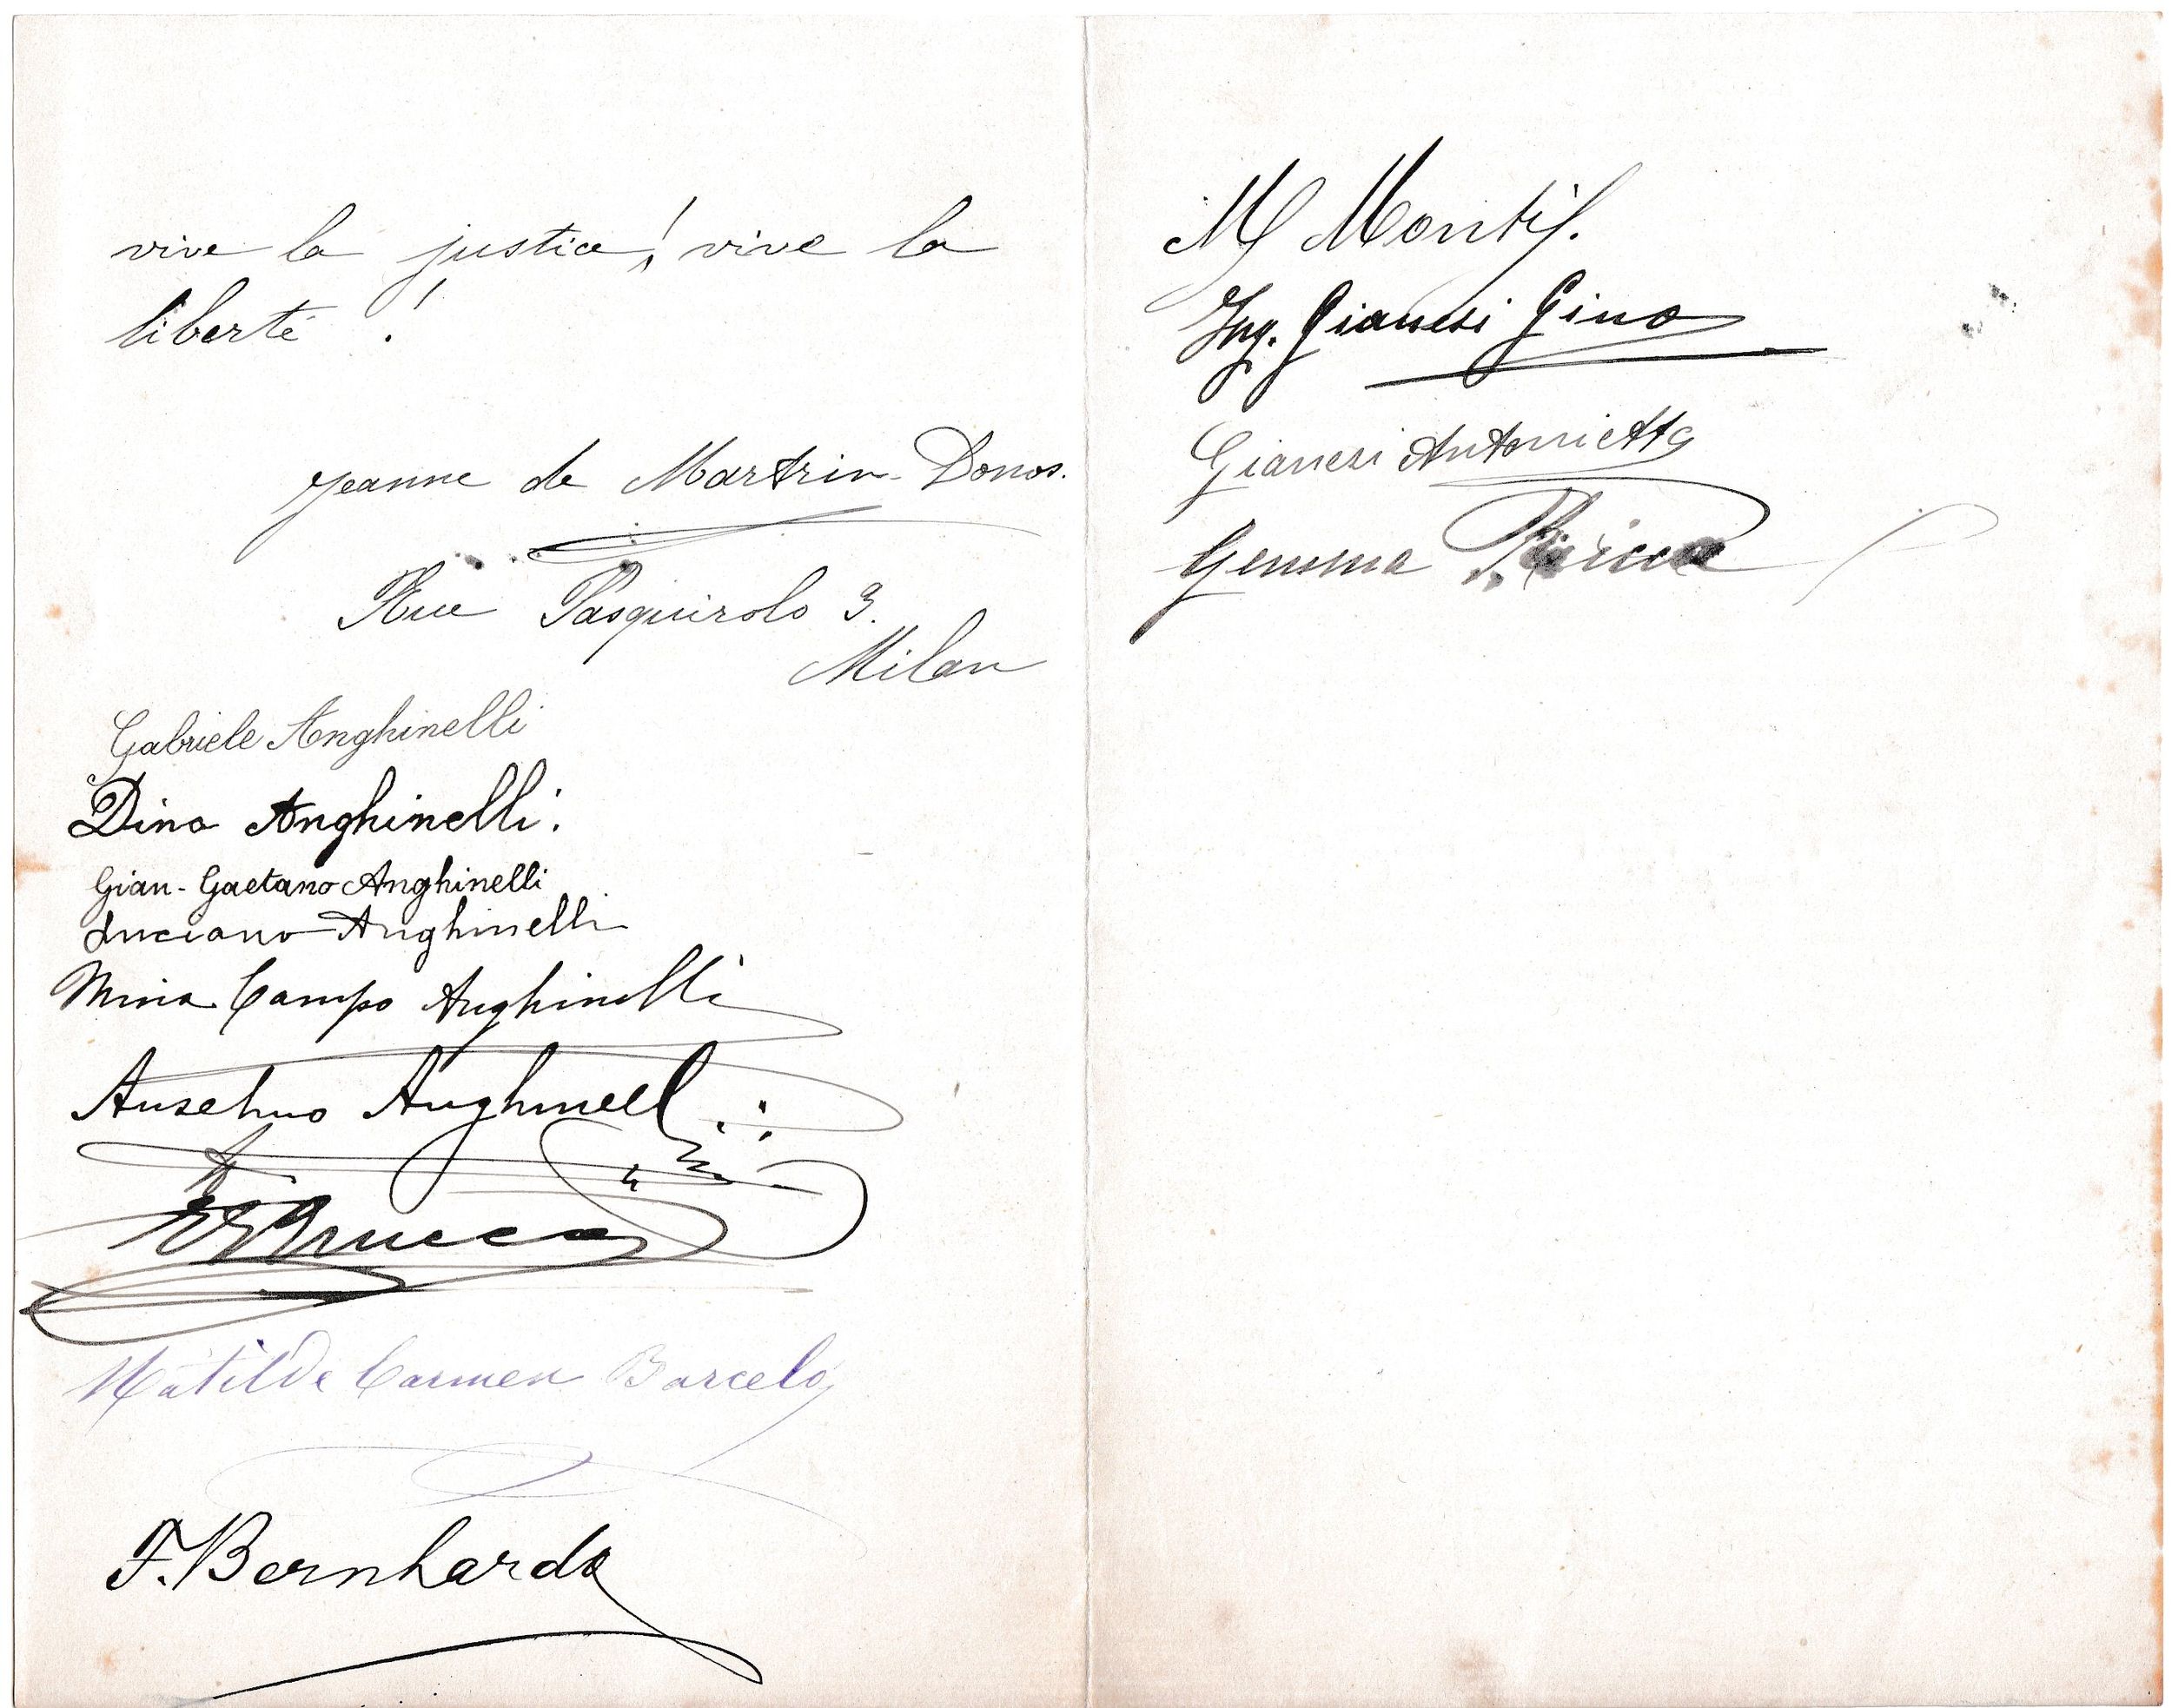 vive la justice! vive la
liberté !
Jeanne de Martrin-Donos.
Rue Pasquirolo 3.
Milan
Gabriele Anghinelli
Dina Anghinelli.
Gian-Gaetano Anghinelli
Luciano Anghinelli
Nina Campo Anghinelli
Anselmo Anghinelli
Matilde Carmen Barceló
F. Bernhardt
M Monti
Ing. Gianesi Gino
Gianesi Antonietta
Gemma